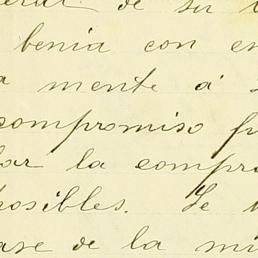 de su
benia con
mente á
compromiso
la compra
posibles. Se
de la mi